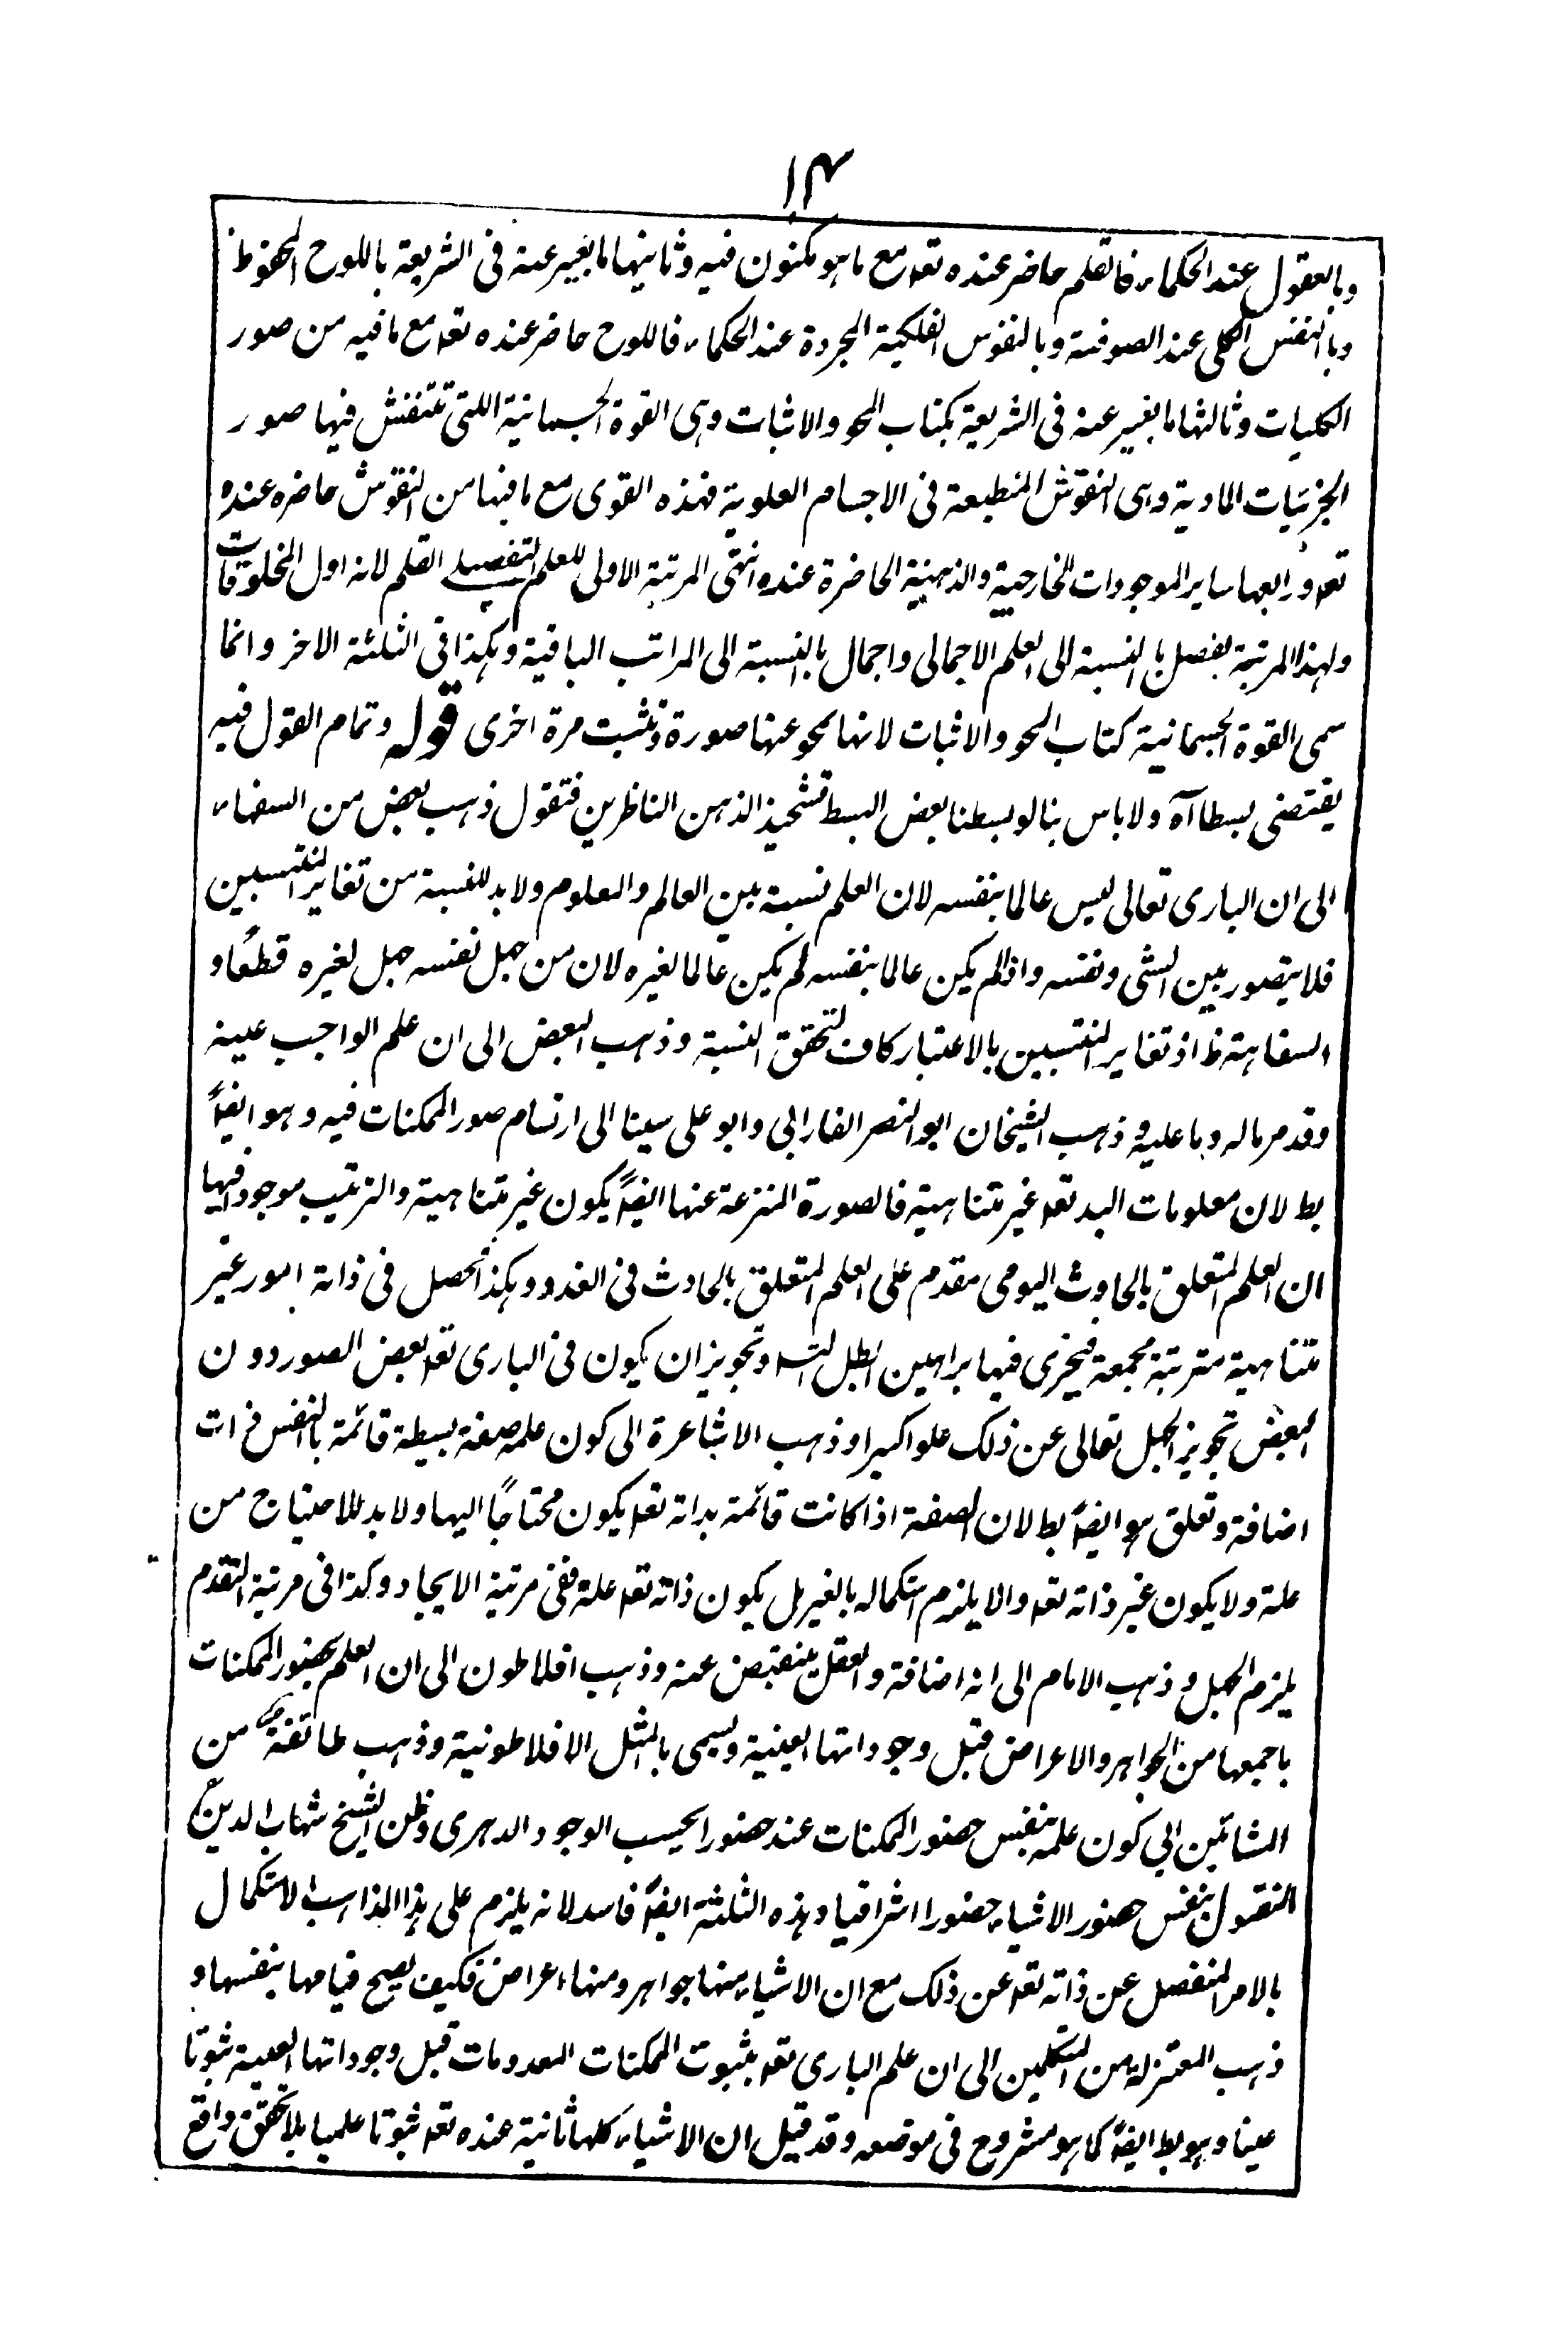 ١٤
وبالعقول عند الحكماء فالقلم حاضر عنده تعه مع ما هو مكنون فيه وثانيها ما يعبر عنه في الشريعة باللوح المحفوظ
وبالنفس الكلي عند الصوفية وبالنفوس الفلكية المجردة عند الحكماء فاللوح حاضر عنده تعه مع ما فيه من صور
الكليات وثالثها ما يعبر عنه في الشريعة بكتاب المحو والاثبات وهي القوة الجسمانية اللتي تنتقش فيها صور
الجزئيات المادية وهي النقوش المنطبعة في الاجسام العلوية فهذه القوى مع ما فيها من النقوش حاضره عنده
تعه ورابعها ساير الموجودات الخارجية والذهنية الحاضرة عنده انتهى المرتبة الاولى للعلم التفصيلي القلم لانه اول المخلوقات
ولهذا المرتبة تفصل بالنسبة الى العلم الاجمالي واجمال بالنسبة الى المراتب الباقية وهكذا في الثلثة الاخر وانما
سمى القوة الجسمانية كتاب المحو والاثبات لانها يمحو عنها صورة وتثبت مرة اخرى قوله وتمام القول فيه
يقتضى بسطا آه ولا باس بنا لو بسطنا بعض البسط تشحيذ الذهن الناظرين فنقول ذهب بعض من السفهاء
الى ان البارى تعالى ليس عالما بنفسه لان العلم نسبة بين العالم والمعلوم ولا بد للنسبة من تغاير المنتسبين
فلا يتصور بين الشى ونفسه واذا لم يكن عالما بنفسه لم يكن عالما لغيره لان من جهل نفسه جهل لغيره قطعًا و
السفاهة ظ اذ تغاير المنتسبين بالاعتبار كاف لتحقق النسبة وذهب البعض الى ان علم الواجب عينه
وقد مر ماله وما عليه وذهب الشيخان ابو النصر الفارابي وابو على سينا الى ارتسام صور الممكنات فيه وهو ايضًا
بط لان معلومات البد تعه غير متناهية فالصورة المنتزعة عنها ايضًا يكون غير متناهية والترتيب موجود فيها
ان العلم المتعلق بالحاوث اليومى مقدم على العلم المتعلق بالحادث في الغد وهكذا فحصل في ذاته امور غير
متناهية مترتبة مجمعة فيجرى فيها براهين ابطل التسه وتجويز ان يكون في البارى تعه بعض الصور دون
البعض تجويز الجهل تعالى عن ذلك علوا كبيرا وذهب الاشاعرة الى كون علمه صفة بسيطة قائمة بالنفس ذات
اضافة وتعلق هو ايضًا بط لان الصفة اذا كانت قائمة بذاته تعه يكون محتاجًا اليها ولا بد للاحتياج من
علة ولا يكون غير ذاته تعه والا يلزم استكماله بالغير بل يكون ذاته تعه علة ففى مرتبة الايجاد وكذا فى مرتبة التقدم
يلزم الجهل وذهب الامام الى انه اضافة والعقل ينقبض عنه وذهب افلاطون الى ان العلم بحضور الممكنات
باجمعها من الجواهر والاعراض قبل وجوداتها العينية ويسمى بالمثل الافلاطونية وذهب طائفة من
المشائين الي كون علمه بنفس حضور الممكنات عند حضور الحسب الوجود الدهرى وظن الشيخ شهاب الدين
المقتول بنفس حضور الاشياء حضورا اشراقيا وهذه الثلثة ايضًا فاسد لانه يلزم على هذا المذاهب الاستكمال
بالامر المنفصل عن ذاته تعه عن ذلك مع ان الاشياء منها جواهر ومنها اعراض فكيف يصح قيامها بنفسها و
ذهب المعتزله من المتكلمين الى ان علم البارى تعه بثبوت الممكنات المعدومات قبل وجوداتها العينية ثبوتا
عينا وهو بط ايضًا كما هو مشروح في موضعه وقد قيل ان الاشياء كلها ثابتة عنده تعه ثبوتا علميا بلا تحقق واقع